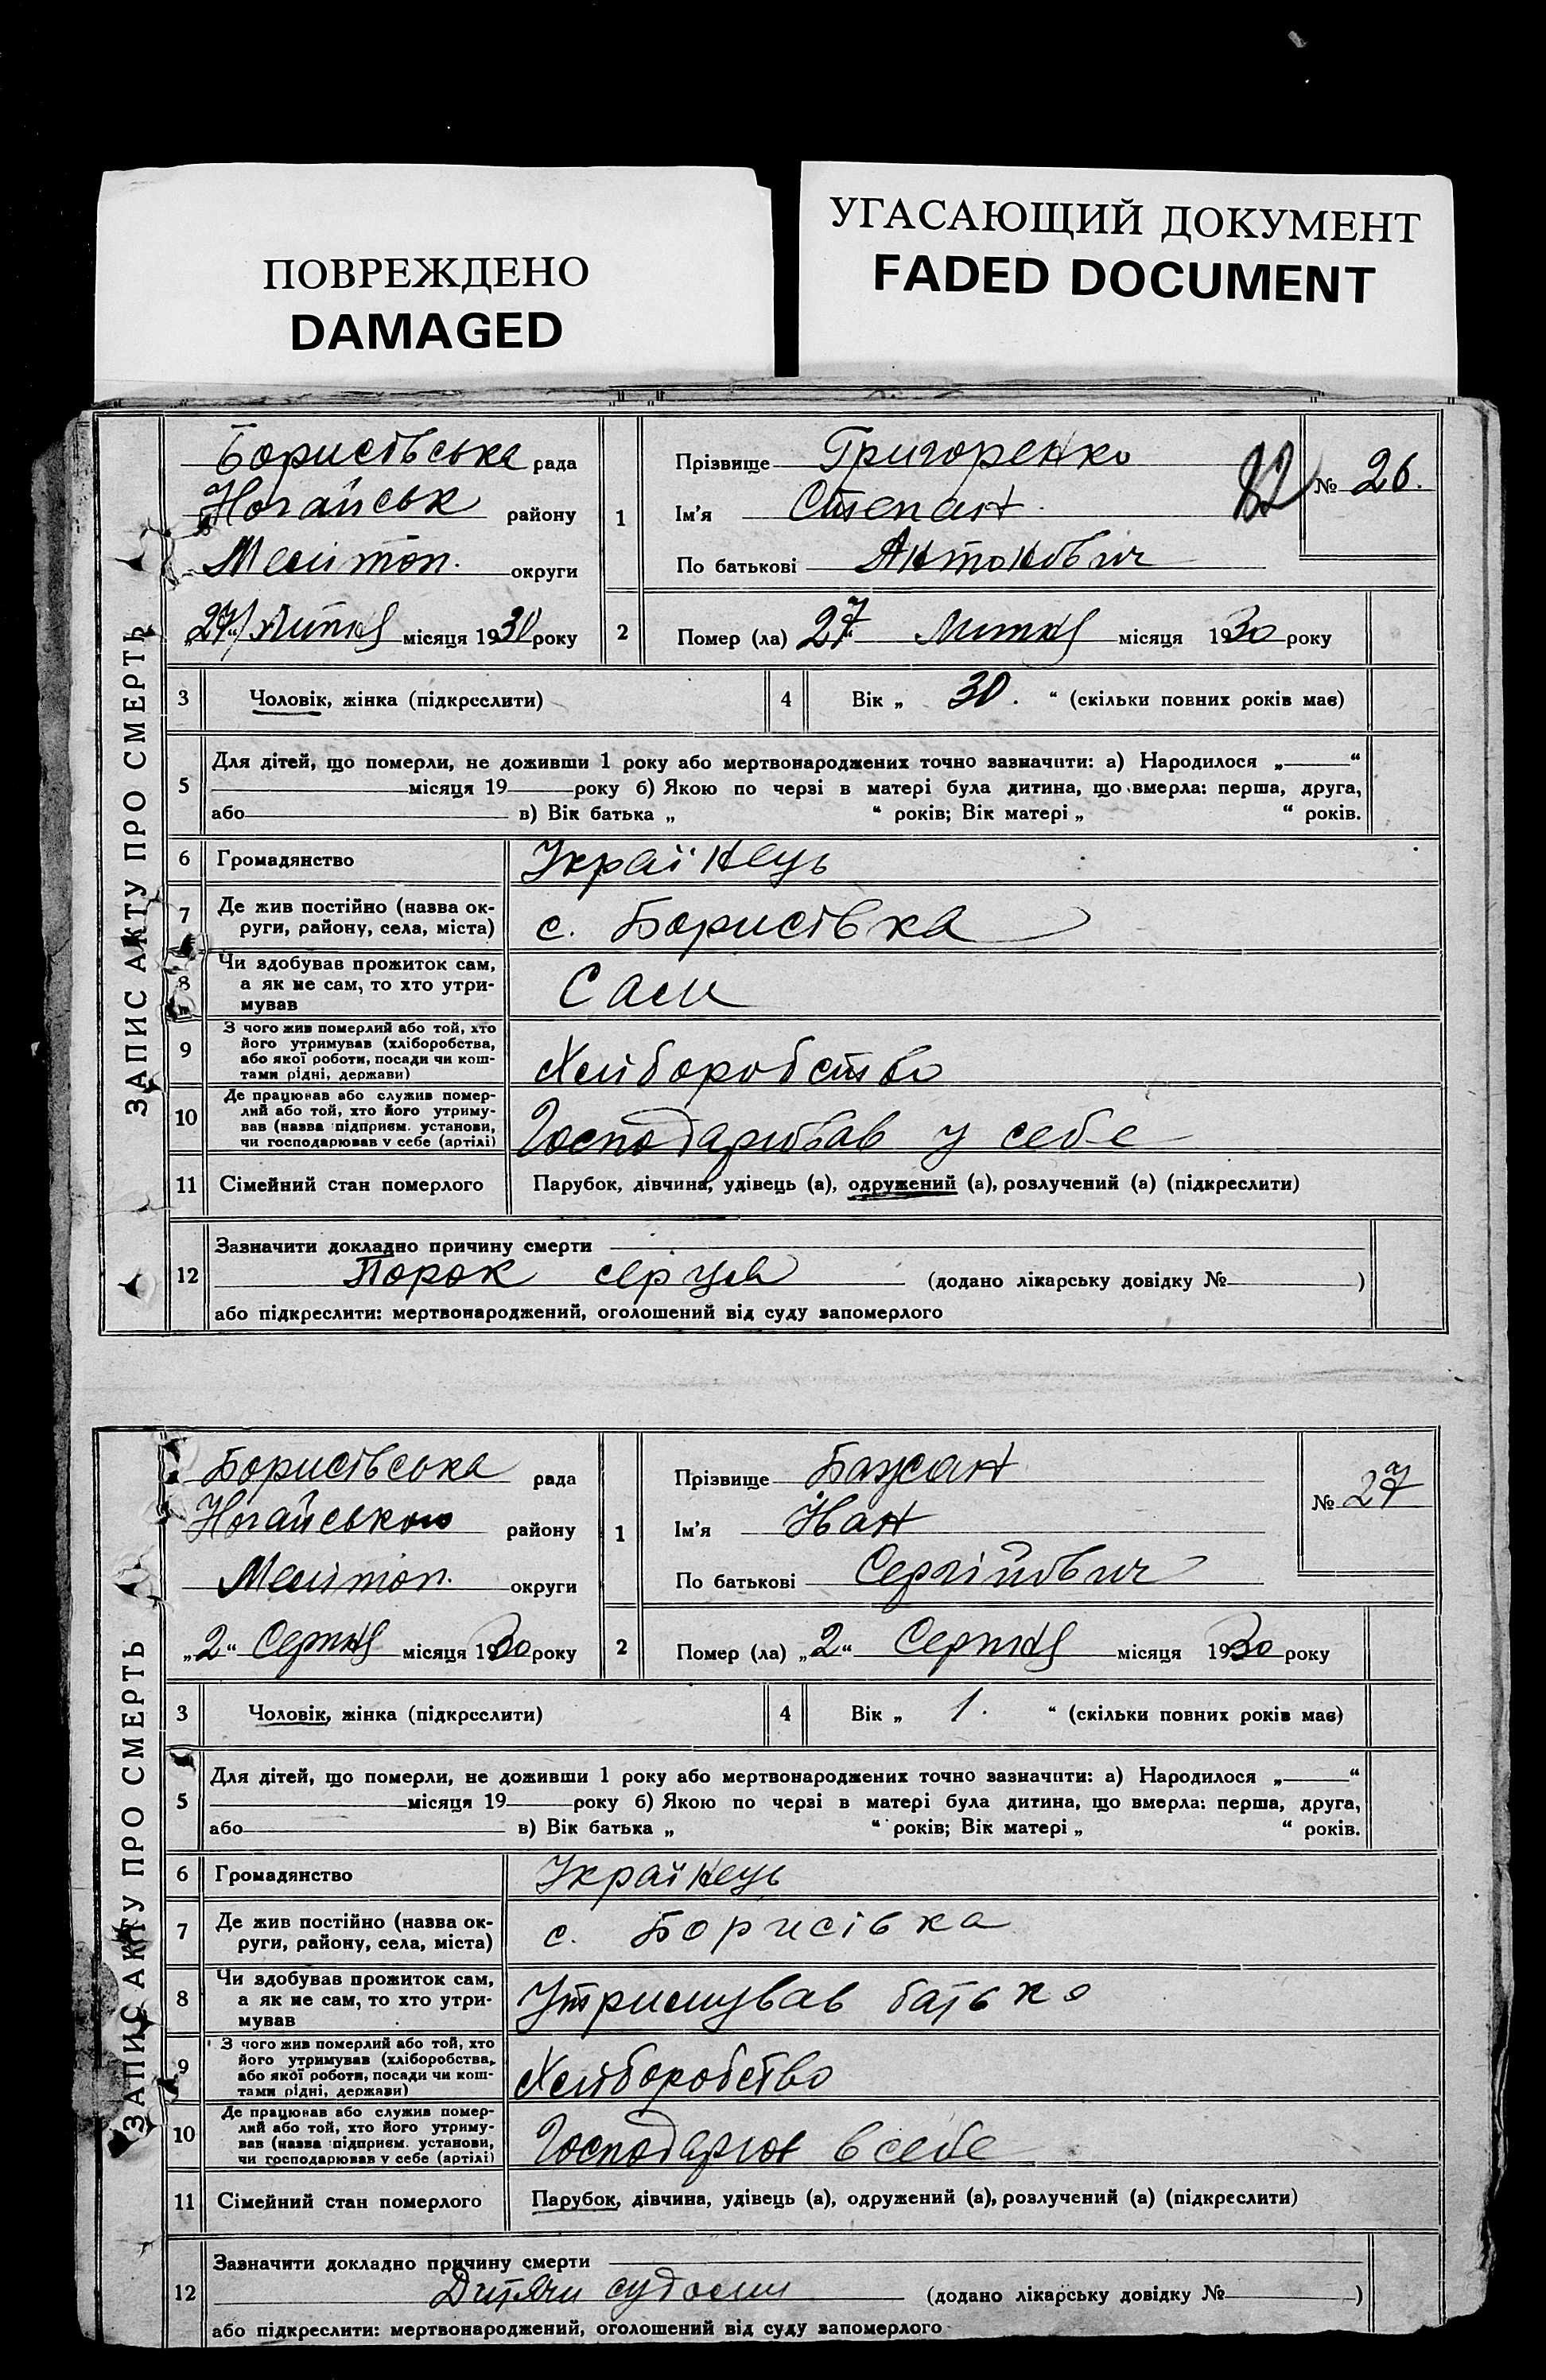 ПОВРЕЖДЕНО
DAMAGED
УГАСАЮЩИЙ ДОКУМЕНТ
FADED DOCUMENT
ЗАПИС АКТУ ПРО СМЕРТЬ
Борисівська рада
Ногайськ району
Мелітоп. округи
„27“ Липня місяця 1930 року
1
Прізвище Григоренко
Ім'я Степан
По батькові Антонович
№ 26.
2 Помер (ла) 27 Липня місяця 1930 року
3 Чоловік, жінка (підкреслити)
4 Вік „ 30. “ (скільки повних років має)
5 Для дітей, що померли, не доживши 1 року або мертвонароджених точно зазначити: а) Народилося „ “
місяця 19 року б) Якою по черзі в матері була дитина, що вмерла: перша, друга,
або в) Вік батька „ “ років; Вік матері „ “ років.
6 Громадянство Українець
7 Де жив постійно (назва ок-
руги, району, села, міста) с. Борисівка
8 Чи здобував прожиток сам,
а як не сам, то хто утри-
мував Сам
9 З чого жив померлий або той, хто
його утримував (хліборобства,
або якої роботи, посади чи кош-
тами рідні, держави) Хліборобство
10 Де працював або служив помер-
лий або той, хто його утриму-
вав (назва підприєм. установи,
чи господарював у себе (артілі) Господарював у себе
11 Сімейний стан померлого Парубок, дівчина, удівець (а), одружений (а), розлучений (а) (підкреслити)
12 Зазначити докладно причину смерти
Порок серця (додано лікарську довідку № )
або підкреслити: мертвонароджений, оголошений від суду запомерлого
ЗАПИС АКТУ ПРО СМЕРТЬ
Борисівська рада
Ногайського району
Мелітоп. округи
„2“ Серпня місяця 1930 року
1
Прізвище Бажан
Ім'я Іван
По батькові Сергійович
№ 27
2 Помер (ла) „2“ Серпня місяця 1930 року
3 Чоловік, жінка (підкреслити)
4 Вік „ 1. “ (скільки повних років має)
5 Для дітей, що померли, не доживши 1 року або мертвонароджених точно зазначити: а) Народилося „ “
місяця 19 року б) Якою по черзі в матері була дитина, що вмерла: перша, друга,
або в) Вік батька „ “ років; Вік матері „ “ років.
6 Громадянство Українець
7 Де жив постійно (назва ок-
руги, району, села, міста) с. Борисівка
8 Чи здобував прожиток сам,
а як не сам, то хто утри-
мував Утримував батько
9 З чого жив померлий або той, хто
його утримував (хліборобства,
або якої роботи, посади чи кош-
тами рідні, держави) Хліборобство
10 Де працював або служив помер-
лий або той, хто його утриму-
вав (назва підприєм. установи,
чи господарював у себе (артілі) в себе
11 Сімейний стан померлого Парубок, дівчина, удівець (а), одружений (а), розлучений (а) (підкреслити)
12 Зазначити докладно причину смерти
Дитячи судоми (додано лікарську довідку № )
або підкреслити: мертвонароджений, оголошений від суду запомерлого